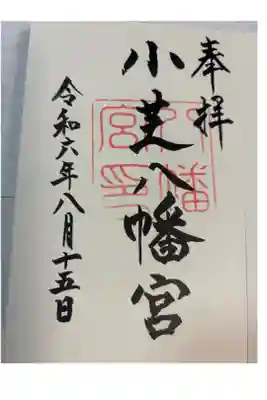 奉拝
小芝八幡宮
八幡
宮印
令和六年八月十五日